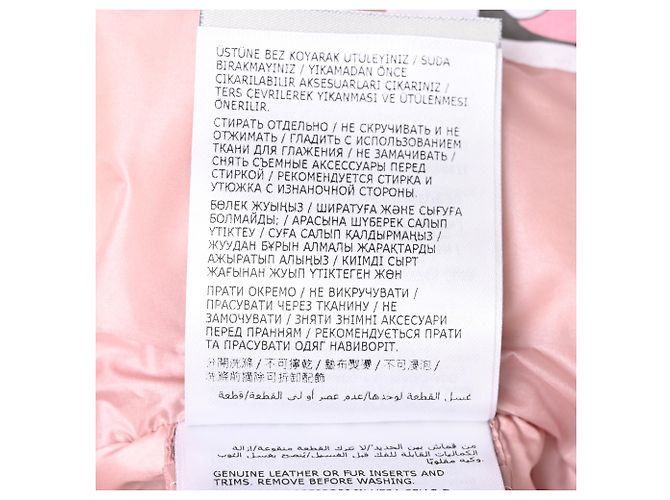 ÜSTÜNE BEZ KOYARAK ÜTÜLEYİNİZ / SUDA
BIRAKMAYINIZ / YIKAMADAN ÖNCE
ÇIKARILABİLİR AKSESUARLARI ÇIKARINIZ /
TERS ÇEVRİLEREK YIKANMASI VE ÜTÜLENMESİ
ÖNERİLİR.
СТИРАТЬ ОТДЕЛЬНО / НЕ СКРУЧИВАТЬ И НЕ
ОТЖИМАТЬ / ГЛАДИТЬ С ИСПОЛЬЗОВАНИЕМ
ТКАНИ ДЛЯ ГЛАЖЕНИЯ / НЕ ЗАМАЧИВАТЬ /
СНЯТЬ СЪЕМНЫЕ АКСЕССУАРЫ ПЕРЕД
СТИРКОЙ / РЕКОМЕНДУЕТСЯ СТИРКА И
УТЮЖКА С ИЗНАНОЧНОЙ СТОРОНЫ.
БӨЛЕК ЖУЫҢЫЗ / ШИРАТУҒА ЖӘНЕ СЫҒУҒА
БОЛМАЙДЫ; / АРАСЫНА ШҮБЕРЕК САЛЫП
ҮТІКТЕУ / СУҒА САЛЫП ҚАЛДЫРМАҢЫЗ /
ЖУУДАН БҰРЫН АЛМАЛЫ ЖАРАҚТАРДЫ
АЖЫРАТЫП АЛЫҢЫЗ / КИІМДІ СЫРТ
ЖАҒЫНАН ЖУЫП ҮТІКТЕГЕН ЖӨН
ПРАТИ ОКРЕМО / НЕ ВИКРУЧУВАТИ /
ПРАСУВАТИ ЧЕРЕЗ ТКАНИНУ / НЕ
ЗАМОЧУВАТИ / ЗНЯТИ ЗНІМНІ АКСЕСУАРИ
ПЕРЕД ПРАННЯМ / РЕКОМЕНДУЄТЬСЯ ПРАТИ
ТА ПРАСУВАТИ ОДЯГ НАВИВОРІТ.
分開洗滌 / 不可擰乾 / 墊布熨燙 / 不可浸泡 /
洗滌前摘除可拆卸配飾
غسل القطعة لوحدها/عدم عصر أو لي القطعة/قطعة
من قماش بين الحديد/لا تترك القطعة منقوعة/إزالة
الكماليات القابلة للفك قبل الغسيل/يُنصح بغسل الثوب
وكيه مقلوبًا
GENUINE LEATHER OR FUR INSERTS AND
TRIMS. REMOVE BEFORE WASHING.